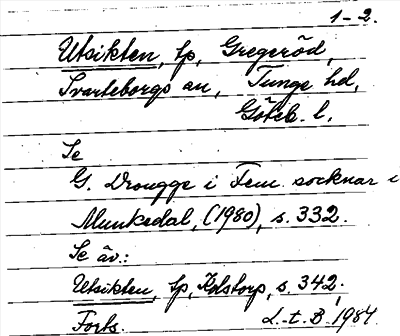 1-2.
Utsikten, lp, Gregeröd,
Svarteborgs sn, Tunge hd,
Göteb. l.
Se
G. Drougge i Fem socknar i
Munkedal, (1980), s. 332.
Se äv.:
Utsikten, lp, Kolstorp, s. 342.
Forts. L.-t. B. 1984.